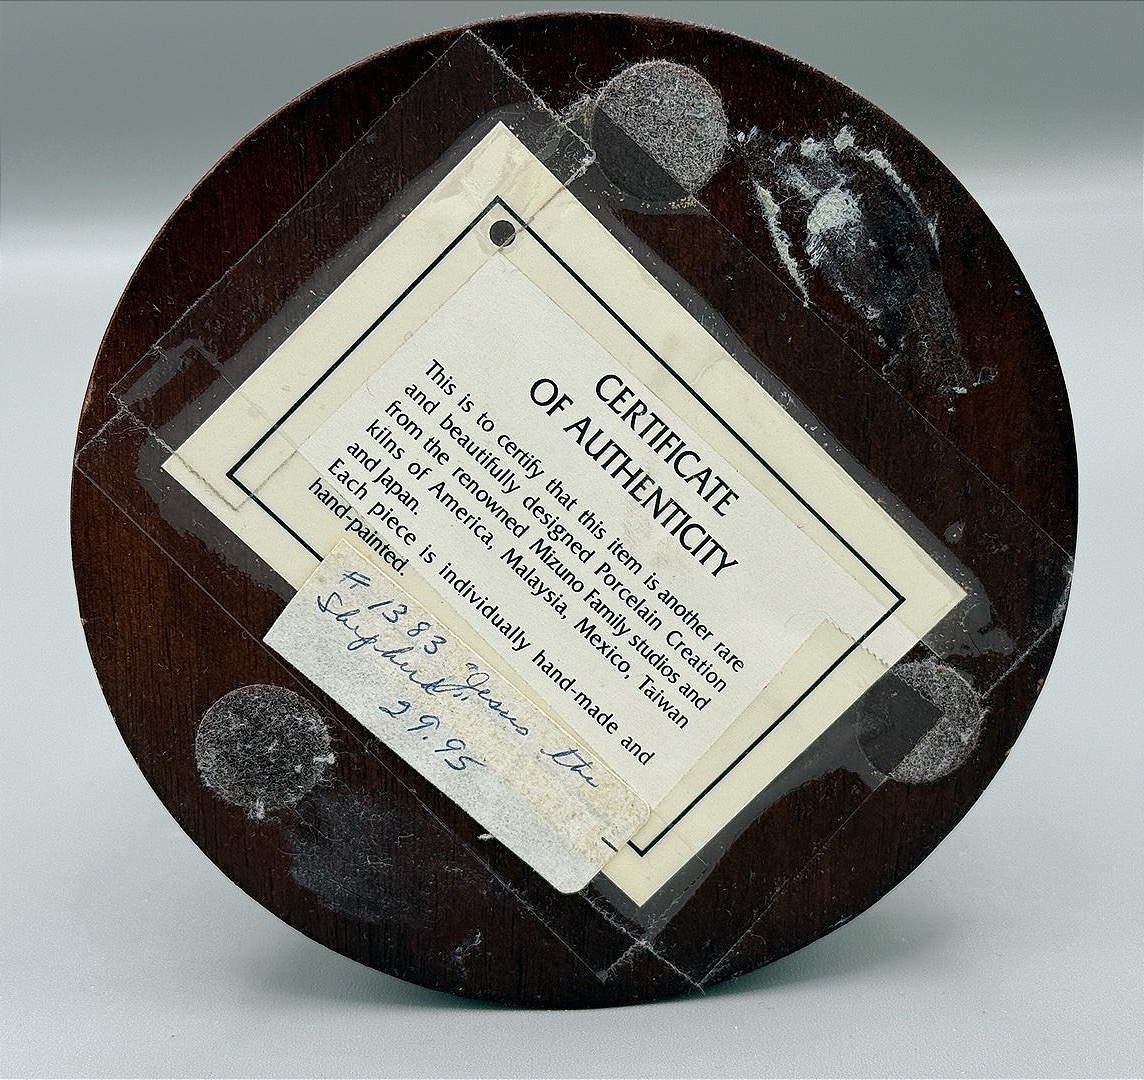 CERTIFICATE
OF AUTHENTICITY
This is to certify that this item is another rare
and beautifully designed Porcelain Creation
from the renowned Mizuno Family studios and
kilns of America, Malaysia, Mexico, Taiwan
and Japan.
Each piece is individually hand-made and
hand-painted.
# 1383 "Jesus the
Shepherd"
29.95